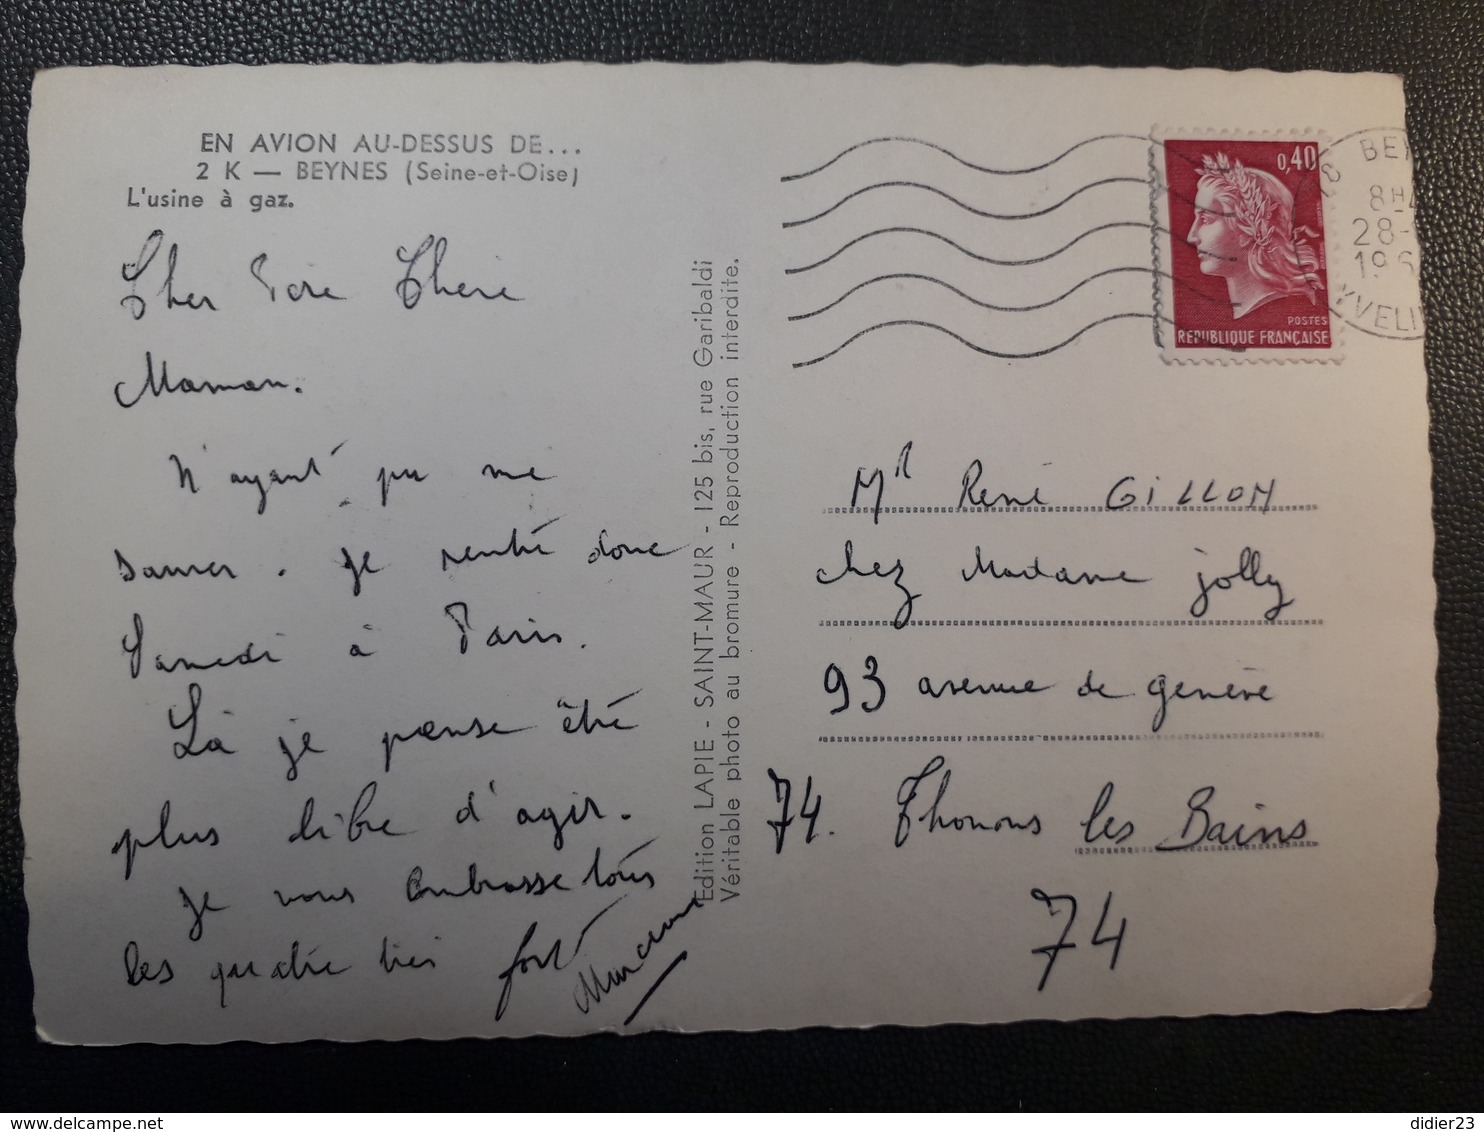 EN AVION AU-DESSUS DE...
2 K — BEYNES (Seine-et-Oise)
L'usine à gaz.
Cher Père Chère
Maman.
N'ayant pu me
sauver. je rentre donc
Samedi à Paris.
Là je pense être
plus libre d'agir.
Je vous embrasse tous
les quatre très fort
Edition LAPIE - SAINT-MAUR - 125 bis, rue Garibaldi
Véritable photo au bromure - Reproduction interdite.
0,40
POSTES
REPUBLIQUE FRANÇAISE
28-
YVELI
Mr René GILLON
chez Madame jolly
93 avenue de genève
74. Thonons les Bains
74
didier23